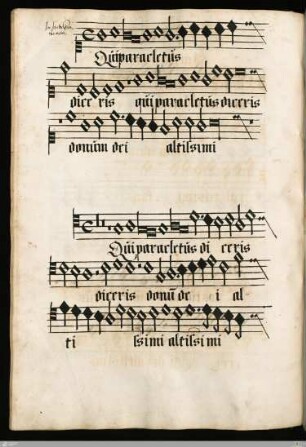 Qui paracletus
diceris qui paracletus diceris
donum dei altissimi
Qui paracletus di ceris
diceris donū de i al
ti ssimi altissimi